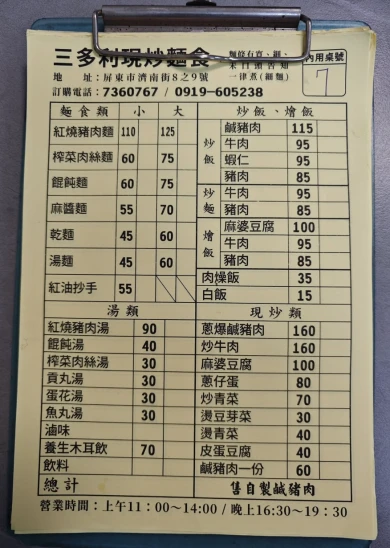 三多利現炒麵食
麵條有寬、細、
未口頭告知
一律煮(細麵)
內用桌號
7
地　址：屏東市濟南街8之9號
訂購電話：7360767 / 0919-605238
麵食類 小 大
紅燒豬肉麵 110 125
榨菜肉絲麵 60 75
餛飩麵 60 75
麻醬麵 55 70
乾麵 45 60
湯麵 45 60
紅油抄手 55
湯類
紅燒豬肉湯 90
餛飩湯 40
榨菜肉絲湯 30
貢丸湯 30
蛋花湯 30
魚丸湯 30
滷味
養生木耳飲 70
飲料
總計
炒飯、燴飯
炒飯
鹹豬肉 115
牛肉 95
蝦仁 95
豬肉 85
炒麵
牛肉 95
豬肉 85
燴飯
麻婆豆腐 100
牛肉 95
豬肉 85
肉燥飯 35
白飯 15
現炒類
蔥爆鹹豬肉 160
炒牛肉 160
麻婆豆腐 100
蔥仔蛋 80
炒青菜 70
燙豆芽菜 30
燙青菜 40
皮蛋豆腐 40
鹹豬肉一份 60
售自製鹹豬肉
營業時間：上午11：00~14:00 / 晚上16:30~19：30